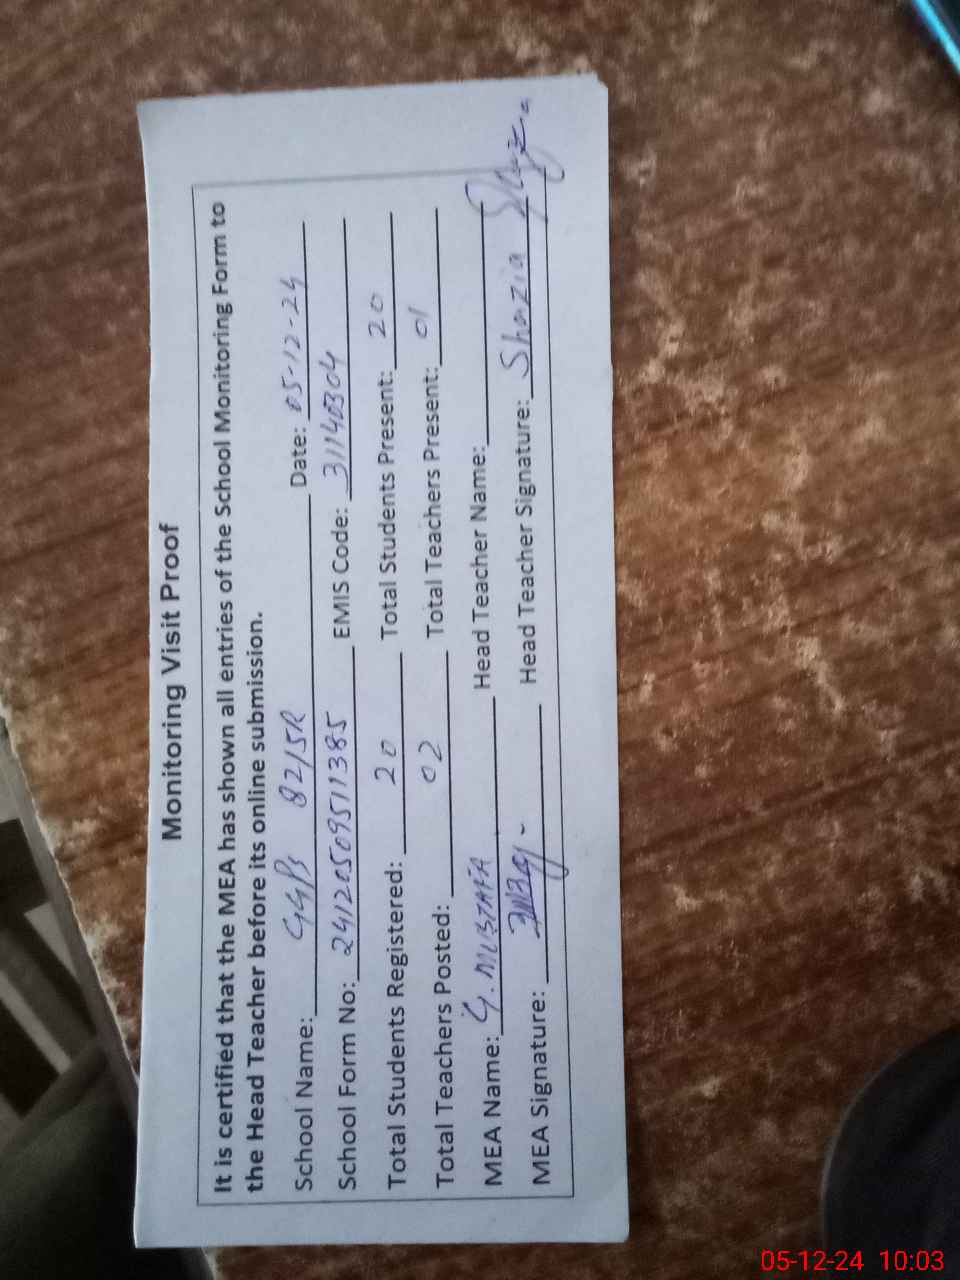 Monitoring Visit Proof
It is certified that the MEA has shown all entries of the School Monitoring Form to
the Head Teacher before its online submission.
School Name: GGPS 82/5R Date: 05-12-24
School Form No: 241205095111385 EMIS Code: 31140304
Total Students Registered: 20 Total Students Present: 20
Total Teachers Posted: 02 Total Teachers Present: 01
MEA Name: G. MUSTAFA Head Teacher Name:
MEA Signature: Head Teacher Signature: Shazia
05-12-24 10:03